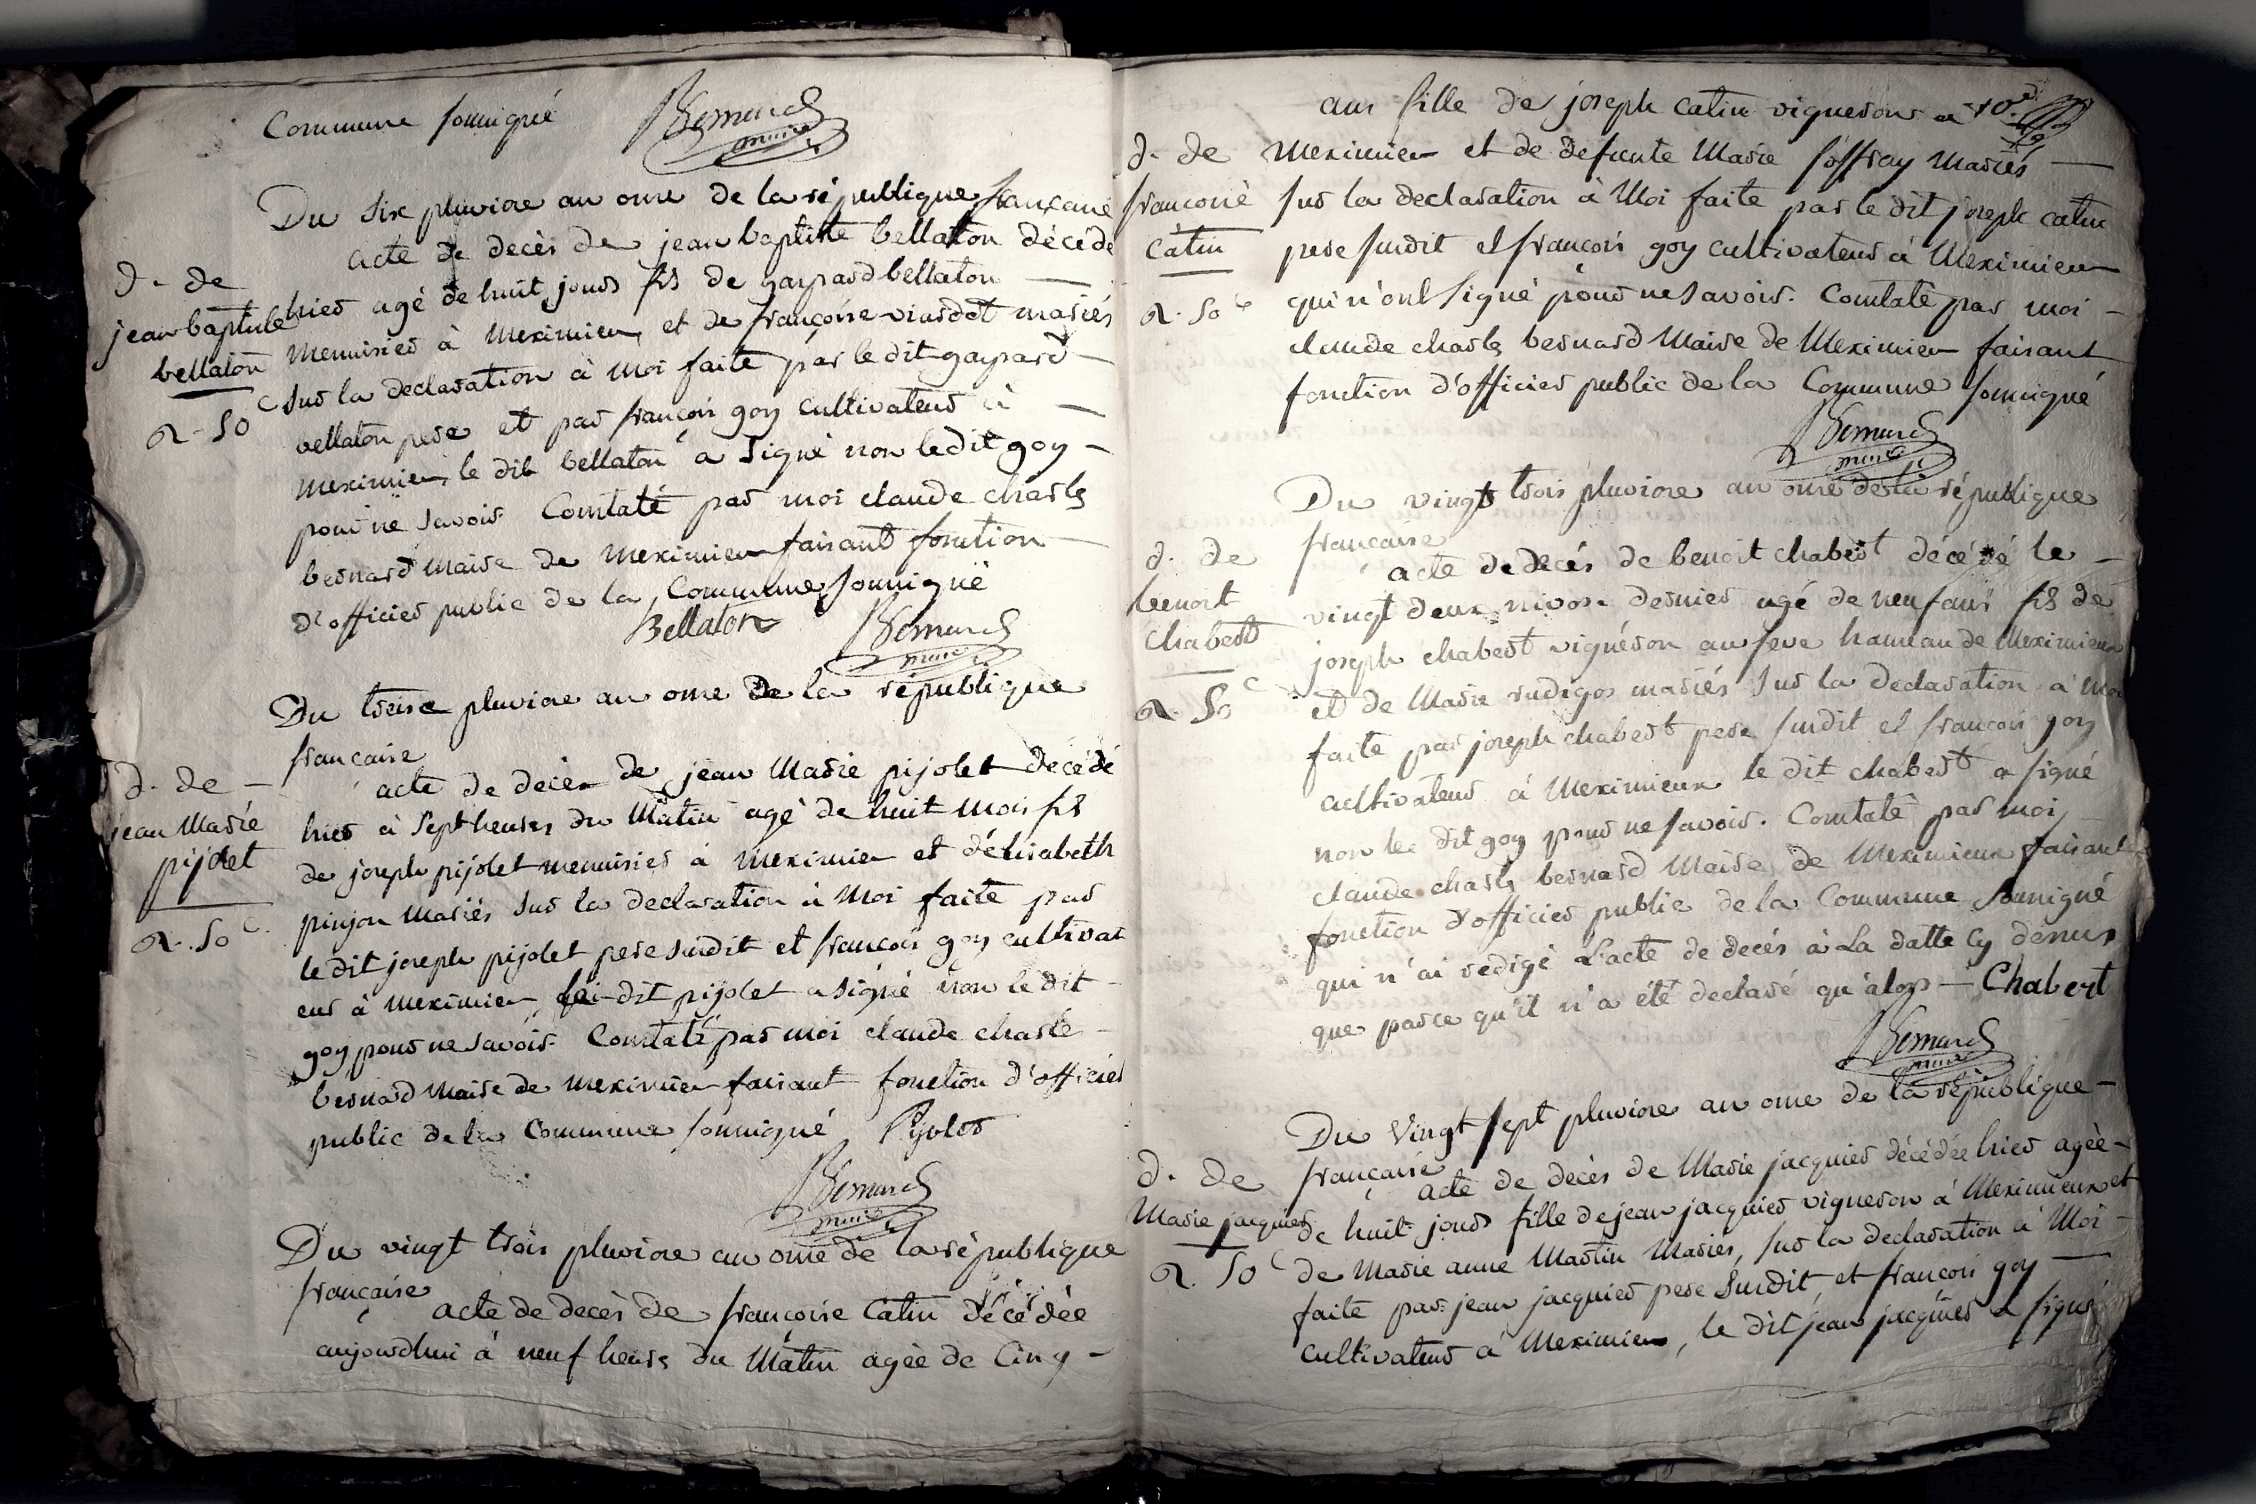 Commune soussigné Bernard
maire
Du six pluviose an onze de la république francaise
acte de decès de jean baptiste bellaton décédé
d. de
jean baptiste
bellaton
2. 50 c
hier agé de huit jours fils de gaspard bellaton
menuisier à meximieu et de françoise viardot mariés
sur la declaration à moi faite par le dit gaspard
bellaton pere et par françois goy cultivateur à
meximieu, le dit bellaton a signé non le dit goy
pour ne savoir Constaté par moi claude charle
bernard maire de meximieu faisant fonction
d'officier public de la Commune soussigné
Bellaton Bernard
maire
Du treize pluviose an onze de la république
francaise
d. de
jean Marie
pijolet
2. 50 c.
acte de decès de jean Marie pijolet décédé
hier à sept heures du Matin agé de huit mois fils
de joseph pijolet menuisier à meximieu et d'élisabeth
pinjon Mariés sur la declaration à Moi faite par
le dit joseph pijolet pere susdit et françois goy cultivat
eur à meximieu, le dit pijolet a signé non le dit
goy pour ne savoir Constaté par moi claude charle
bernard maire de meximieu faisant fonction d'officier
public de la Commune soussigné Pijolet
Bernard
maire
Du vingt trois pluviose an onze de la république
française
acte de decès de françoise Catin décédée
aujourdhui à neuf heures du Matin agée de Cinq
ans fille de joseph catin vigneron a 10e
d. de
françoise
Catin
2. 50 c
Meximieu et de defunte Marie soffray Mariés
sur la declaration à Moi faite par le dit joseph catin
pere susdit et françois goy cultivateur à Meximieu
qui n'ont signé pour ne savoir. Constaté par moi
claude charle bernard Maire de Meximieu faisant
fonction d'officier public de la Commune soussigné
Bernard
maire
Du vingt trois pluviose an onze de la république
francaise
d. de
benoit
Chabert
2. 50 c
acte de decés de benoit chabert décédé le
vingt deux nivose dernier agé de neuf ans fils de
joseph chabert vignéron au hameau de Meximieux
et de Marie mariés sur la declaration à Moi
faite par joseph chabert pere susdit et francois goy
cultivateur à Meximieux le dit chabert a signé
non le dit goy pour ne savoir. Constaté par moi
claude charle bernard Maire de Meximieux faisant
fonction d'officier public de la Commune soussigné
qui n'ai rédigé L'acte de decés à La datte Cy dessus
que parce qu'il n'a été declaré qu'alors Chabert
Bernard
maire
Du Vingt sept pluviose an onze de la république
française
d. de
Marie jacquier
2. 50 c
acte de decès de Marie jacquier décédée hier agée
de huit jours fille de jean jacquier vigneron à Meximieux et
de Marie anne Martin Mariés, sur la declaration à Moi
faite par jean jacquier pere susdit, et francois goy
cultivateur à Meximieu, le dit jean jacquier a signé